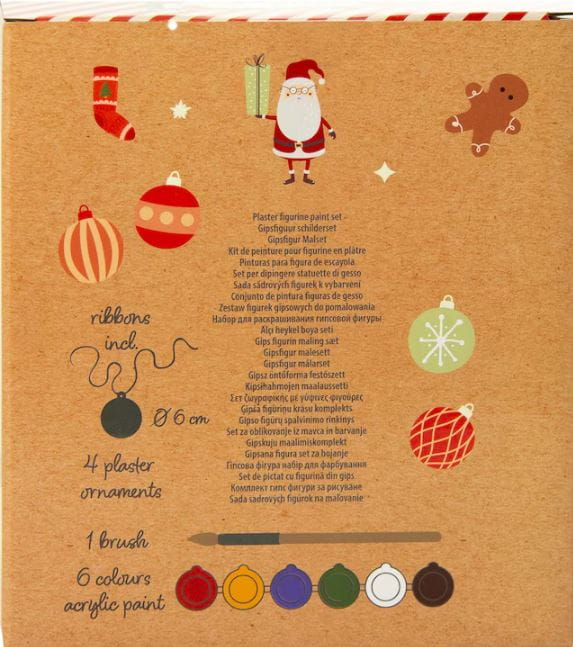 Plaster figurine paint set -
Gipsfiguur schilderset
Gipsfigur Malset
Kit de peinture pour figurine en plâtre
Pinturas para figura de escayola
Set per dipingere statuette di gesso
Sada sádrových figurek k vybarvení
Conjunto de pintura figuras de gesso
Zestaw figurek gipsowych do pomalowania
Набор для раскрашивания гипсовой фигуры
Alçı heykel boya seti
Gips figurin maling sæt
Gipsfigur malesett
Gipsfigur målarset
Gipsz öntőforma festőszett
Kipsihahmojen maalaussetti
Σετ ζωγραφικής με γύψινες φιγούρες
Ģipša figūriņu krāsu komplekts
Gipso figūrų spalvinimo rinkinys
Set za oblikovanje iz mavca in barvanje
Gipskuju maalimiskomplekt
Gipsana figura set za bojanje
Гіпсова фігура набір для фарбування
Set de pictat cu figurină din gips
Комплект гипс фигури за рисуване
Sada sadrových figúrok na maľovanie
ribbons
incl.
Ø 6 cm
4 plaster
ornaments
1 brush
6 colours
acrylic paint